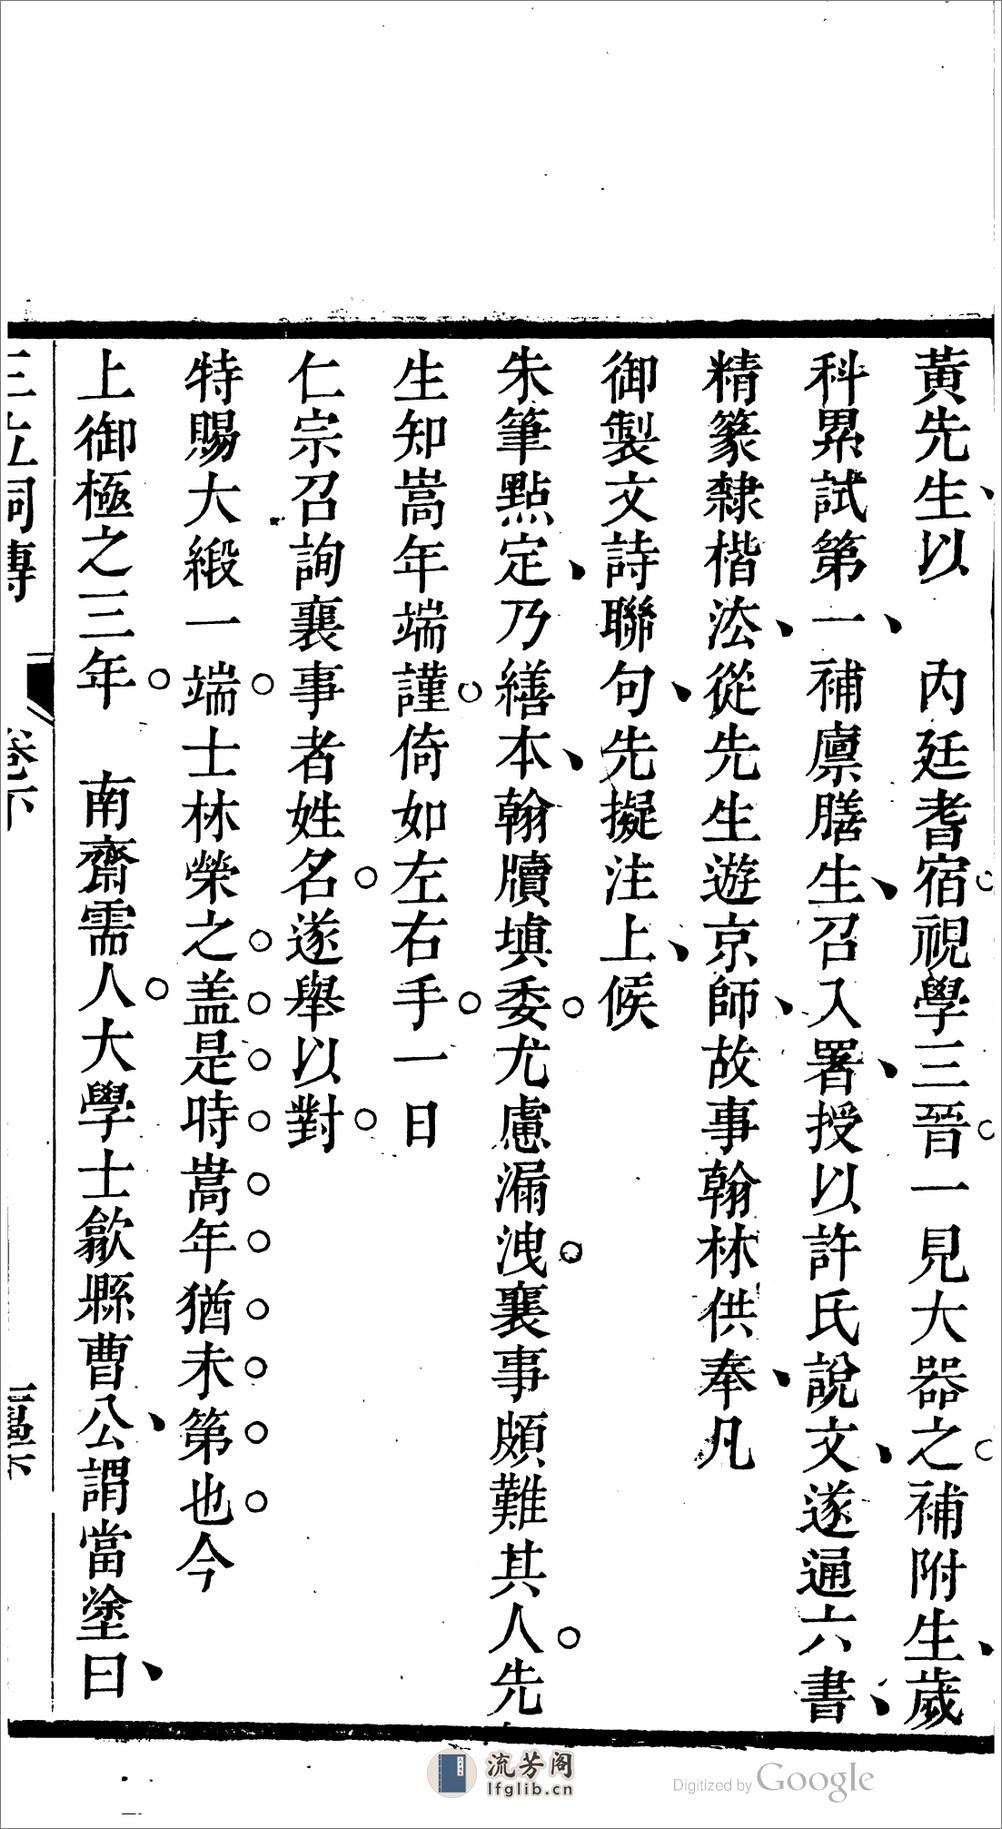 黃先生以　內廷耆宿視學三晉一見大器之補附生歲
科累試第一補廩膳生召入署授以許氏說文遂通六書
精篆隸楷法從先生遊京師故事翰林供奉凡
御製文詩聯句先擬注上候
朱筆點定乃繕本翰牘填委尤慮漏洩襄事頗難其人先
生知嵩年端謹倚如左右手一日
仁宗召詢襄事者姓名遂舉以對
特賜大緞一端士林榮之盖是時嵩年猶未第也今
上御極之三年　南齋需人大學士歙縣曹公謂當塗曰
三立祠傳　卷下
流芳阁
lfglib.cn
Digitized by Google